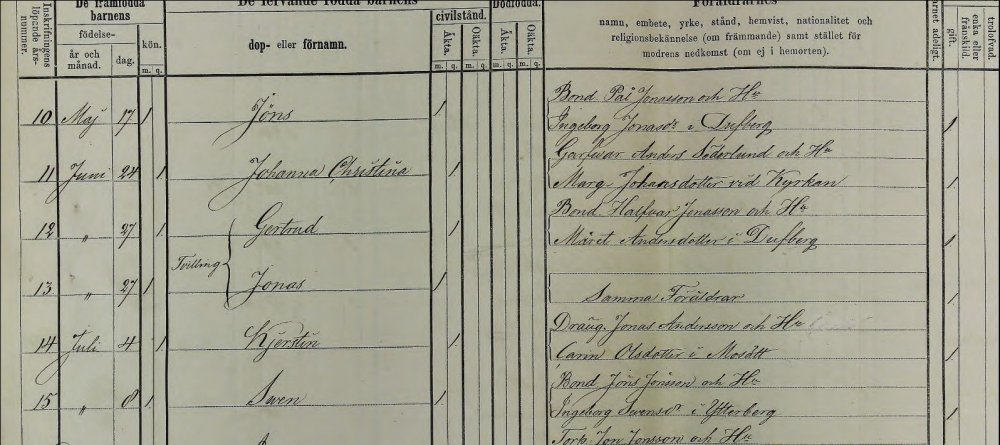 Inskrifningens löpande års-nummer.
De framfödda barnens
födelse-
år och månad.
dag.
kön.
m. q.
De lefvande födda barnens
dop- eller förnamn.
civilstånd.
Äkta.
Oäkta.
m. q. m. q.
Dödfödda.
Äkta.
Oäkta.
m. q. m. q.
Föräldrarnes
namn, embete, yrke, stånd, hemvist, nationalitet och
religionsbekännelse (om främmande) samt stället för
modrens nedkomst (om ej i hemorten).
adeligt.
gift.
enka eller frånskild.
trolofvad.
Bond. Pål Jonasson och Hu
10 Maj 17 1 Jöns 1 Ingeborg Jonasdr i Dufberg 1
Garfvar Anders Söderlund och Hu
11 Juni 24 1 Johanna Christina 1 Marg. Johansdotter vid Kyrkan 1
Bond. Halfvar Jonasson och Hu
12 " 27 1 Gertrud 1 Märet Andersdotter i Dufberg 1
Tvilling
13 " 27 1 Jonas 1 Samma Föräldrar 1
Dräng. Jonas Andersson och Hu
14 Juli 4 1 Kjerstin 1 Carin Olsdotter i Mosätt 1
Bond Jöns Jonsson och Hu
15 " 8 1 Swen 1 Ingeborg Swensdr i Ytterberg 1
Torp. Jon Jonsson och Hu